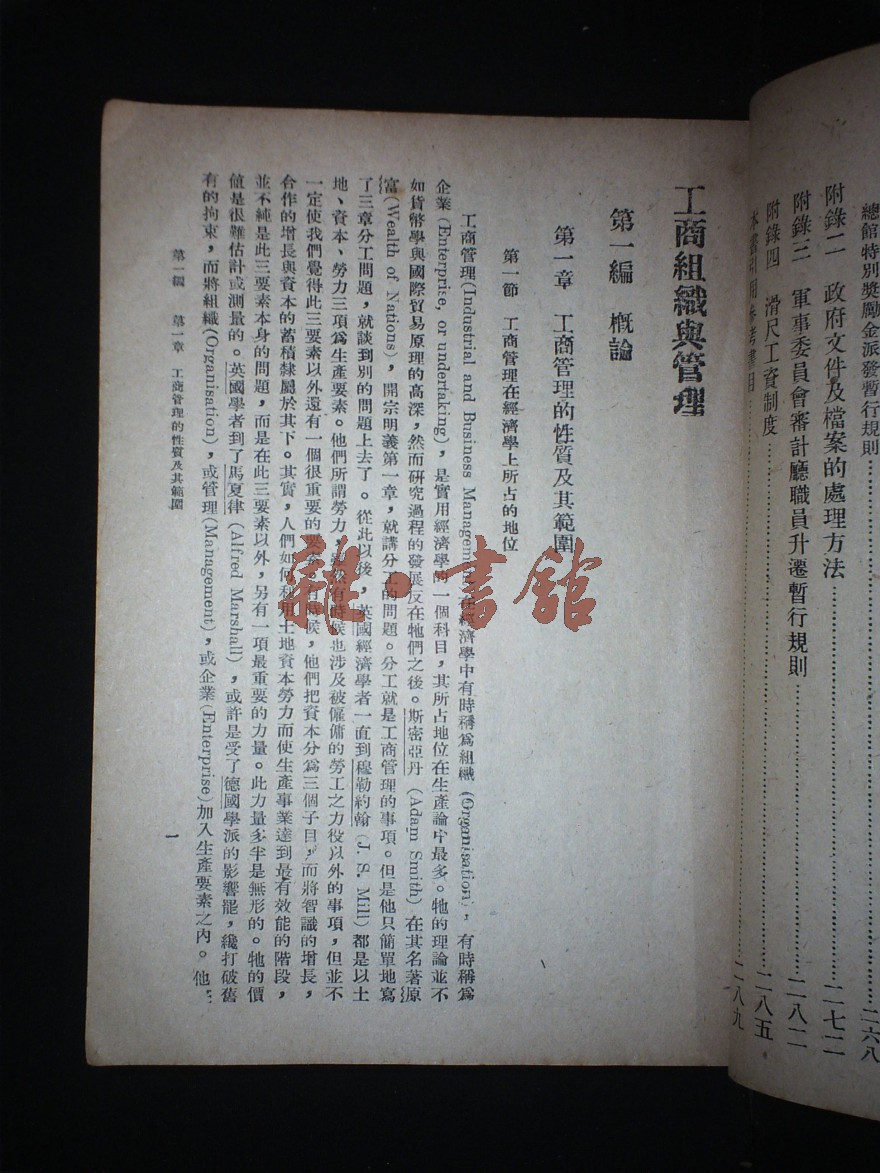 總館特別獎勵金派發暫行規則……二六八
附錄二　政府文件及檔案的處理方法……二七二
附錄三　軍事委員會審計廳職員升遷暫行規則……二八二
附錄四　滑尺工資制度……二八五
本書引用參考書目……二八九
工商組織與管理
第一編　概論
第一章　工商管理的性質及其範圍
第一節　工商管理在經濟學上所占的地位
工商管理(Industrial and Business Management)在經濟學中有時稱爲組織(Organisation)，有時稱爲
企業(Enterprise, or undertaking)，是實用經濟學的一個科目，其所占地位在生產論中最多。牠的理論並不
如貨幣學與國際貿易原理的高深，然而研究過程的發展反在牠們之後。斯密亞丹(Adam Smith)在其名著原
富(Wealth of Nations)，開宗明義第一章，就講分工的問題。分工就是工商管理的事項。但是他只簡單地寫
了三章分工問題，就談到別的問題上去了。從此以後，英國經濟學者一直到穆勒約翰(J. S. Mill)都是以土
地、資本、勞力三項爲生產要素。他們所謂勞力，雖然有時候也涉及被僱傭的勞工之力役以外的事項，但並不
一定使我們覺得此三要素以外還有一個很重要的要素。有時候，他們把資本分爲三個子目，而將智識的增長，
合作的增長與資本的蓄積隸屬於其下。其實，人們如何利用土地資本勞力而使生產事業達到最有效能的階段，
並不純是此三要素本身的問題，而是在此三要素以外，另有一項最重要的力量。此力量多半是無形的。牠的價
值是很難估計或測量的。英國學者到了馬夏律(Alfred Marshall)，或許是受了德國學派的影響罷，纔打破舊
有的拘束，而將組織(Organisation)，或管理(Management)，或企業(Enterprise)加入生產要素之內。他
第一編　第一章　工商管理的性質及其範圍
一
雜·書館